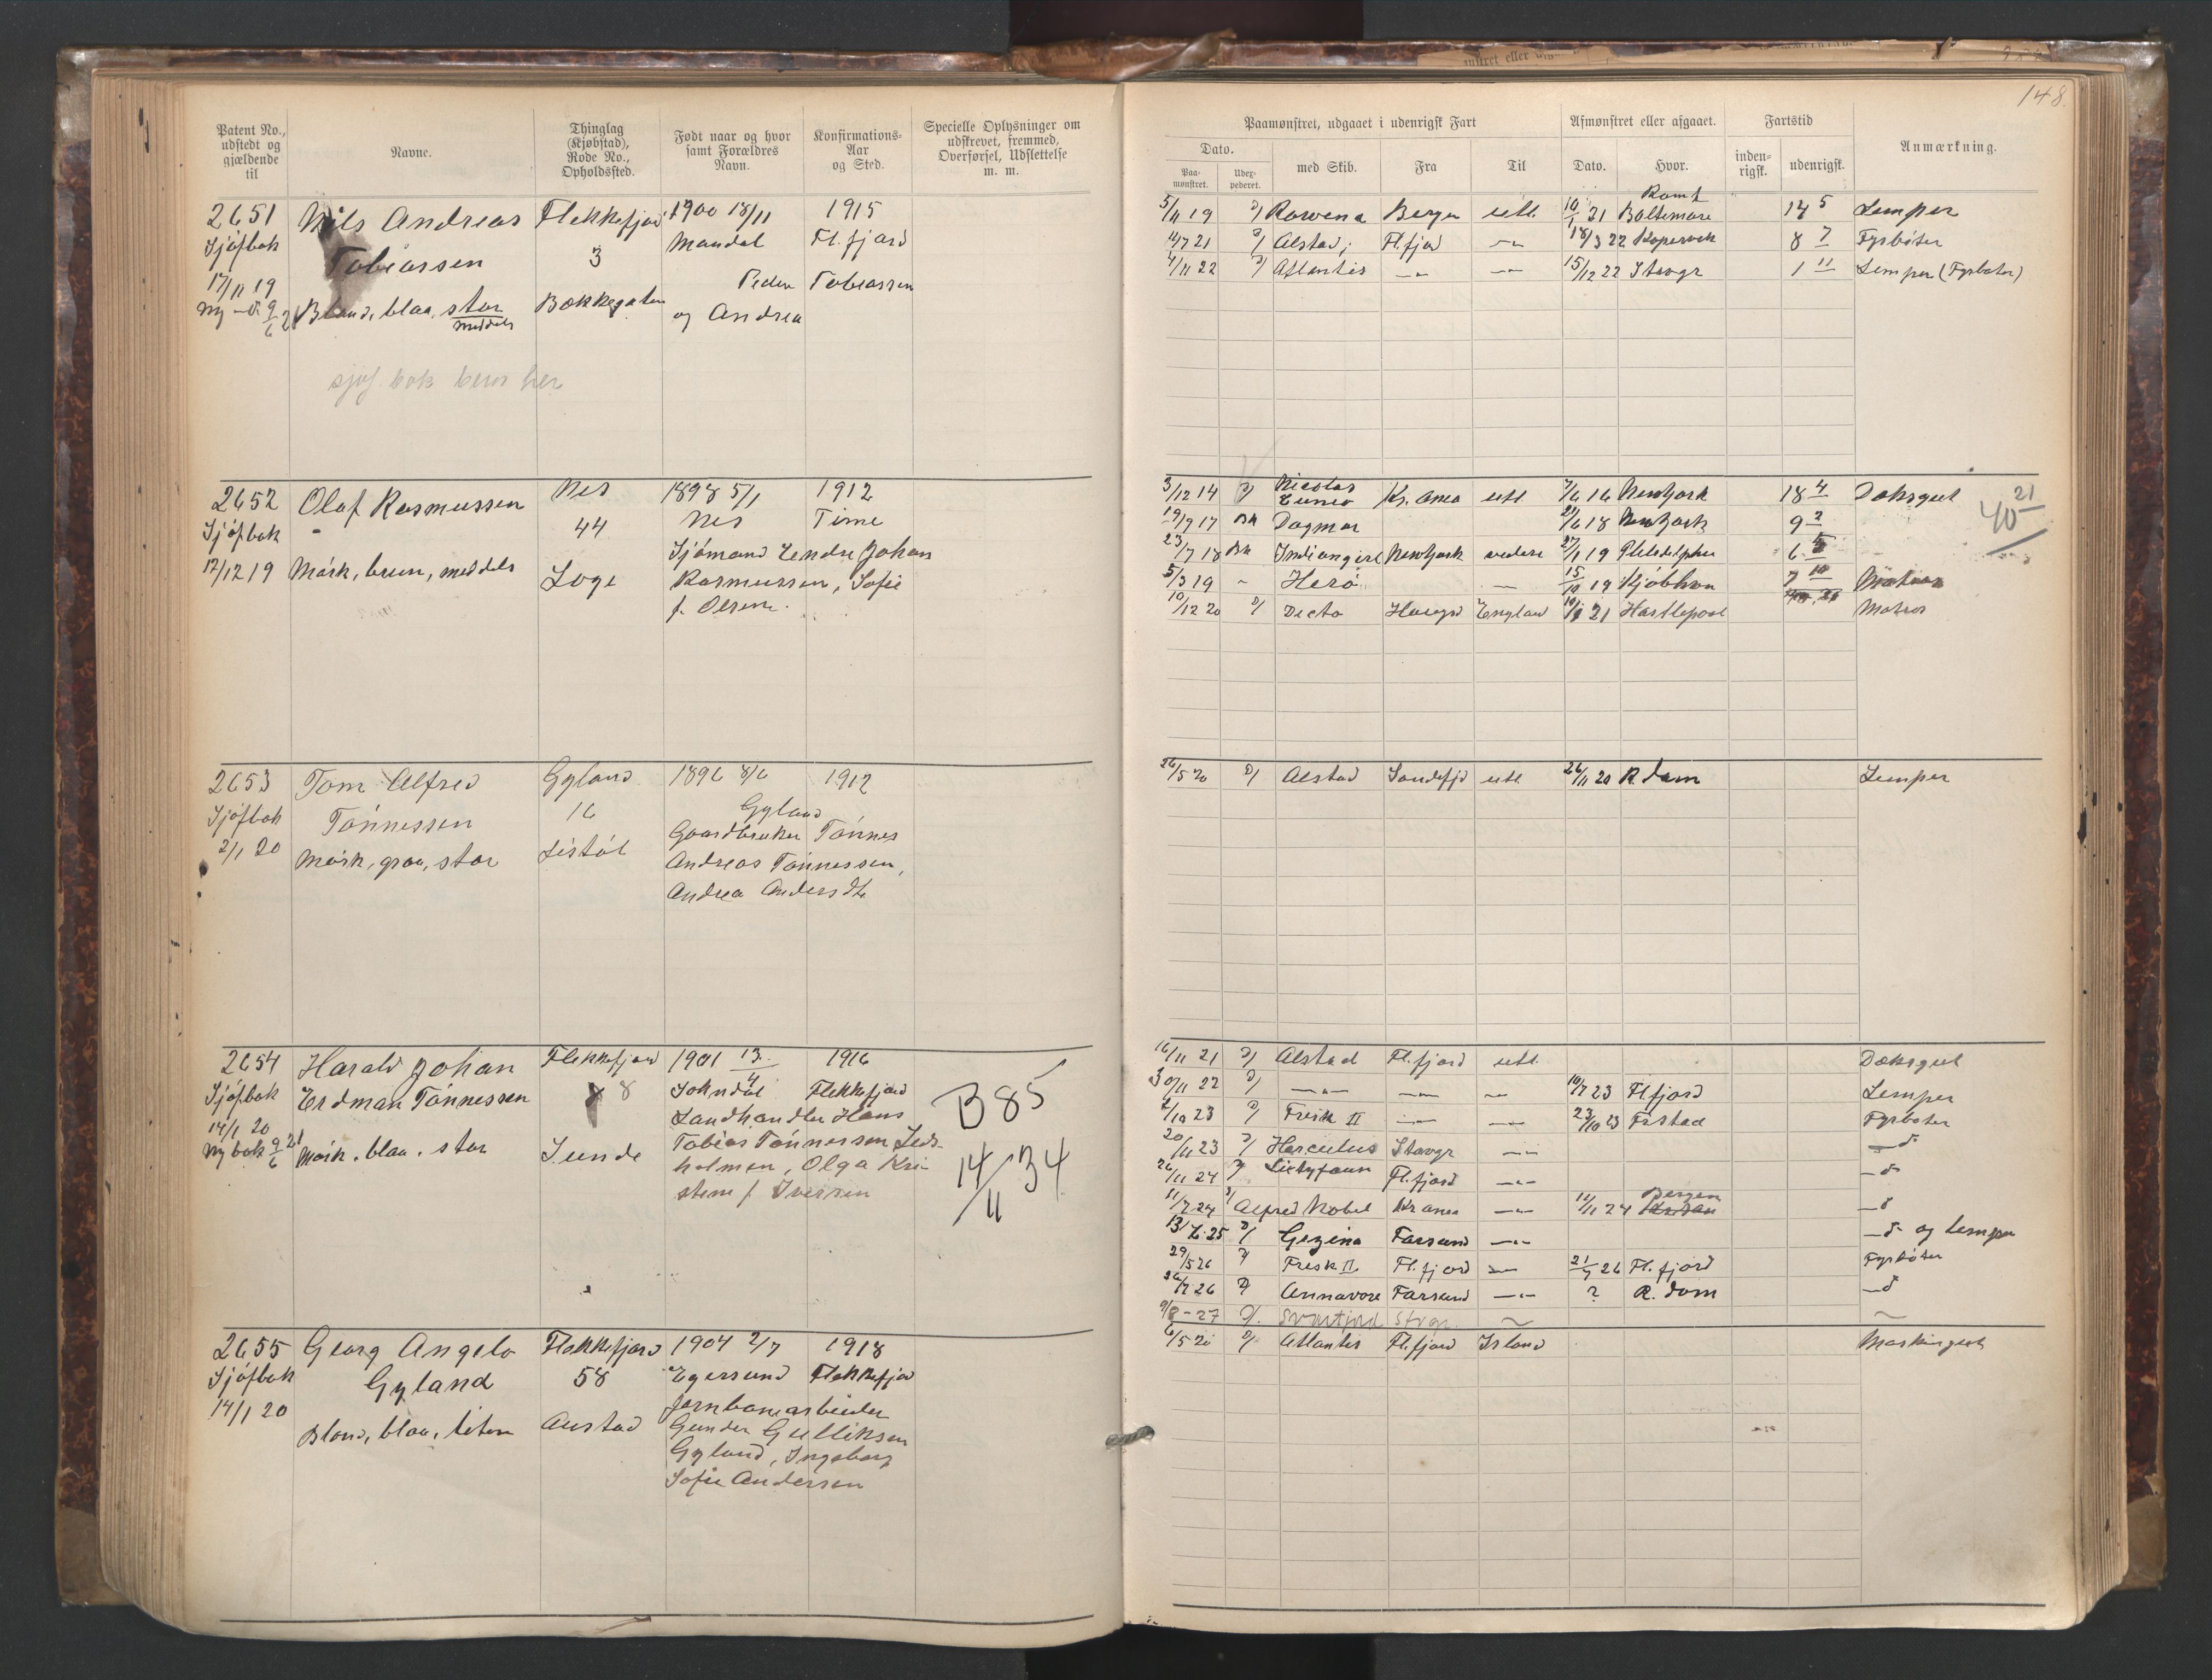 148.
Patent No., udstedt og gjældende til
Navne.
Thinglag (Kjøbstad), Rode No., Opholdssted.
Født naar og hvor samt Forældres Navn.
Konfirmations-Aar og Sted.
Specielle Oplysninger om udskrevet, fremmed, Overførsel, Udslettelse m. m.
Paamønstret, udgaaet i udenrigsk Fart
Afmønstret eller afgaaet.
Fartstid
Anmærkning.
Dato.
med Skib.
Fra
Til
Dato.
Hvor.
inden-rigsk.
udenrigsk.
Paa-mønstret.
Udex-pederet.
2651 Nils Andreas Flekkefjord 1900 18/11 1915
Sjøfbok Tobiassen 3 Mandal Fl.fjord
17/11 19 Peder Tobiassen
Ny 9/6 21 Blond, blaa, stor Bakkegaten og Andrea
meddels
sjøf. bok beror her
5/11 19 D/ Rowena Bergen utl 10/1 21 Baltimore 14 5 Lemper
D/ Alstad, Fl.fjord 18/3 22 Kopervik 8 7 Fyrbøter
4/11 22 D/ Atlantis 15/12 22 Stavgr 1 11 Lemper (Fyrbøter)
2652 Olaf Rasmussen Nes 1898 5/1 1912
Sjøfbok 44 Nes Time
17/12 19 Mørk, brun, meddels Loge Sjømand Endre Johan
Rasmussen, Sofie
f. Olsen.
3/12 14 D/ Nicolas Cuneo Kr.ania utl 7/6 16 NewYork 18 4 Dæksgut
19/9 17 Bk Dagmar 21/6 18 NewYork 9 2
23/7 18 Bk Indiangirl NewYork videre 27/1 19 Philadelphia 6
5/3 19 Herö 15/10 19 Kjøbhvn 7 10 Matros
10/12 20 D/ Dicto Haugsd England 21 Hartlepool Matros
40 21
2653 Tom Alfred Gyland 1896 8/6 1912
Sjøfbok Tønnessen 16 Gyland
2/1 20 Mørk, graa, stor Listøl Gaardbruker Tønnes
Andreas Tønnessen,
Andrea Andersdt
26/5 20 D/ Alstad Sandefjd utl 26/11 20 R.dam Lemper
2654 Harald Johan Flekkefjord 1901 13/4 1916
Sjøfbok Erdman Tønnessen 8 Sokndal Flekkefjord
14/1 20 Landhandler Hans
Ny bok 9/6 21 Mørk, blaa, stor Sunde Tobias Tønnessen Lids-
holmen, Olga Kri-
stine f. Iversen
B 85
14/11 34
16/11 21 D/ Alstad Fl.fjord utl. Dæksgut
30/11 22 D/ 23 Fl.fjord Lemper
23 D/ Frisk II 23/10 23 Farstad Fyrbøter
20/11 23 D/ Herculus Stavgr
26/11 24 D/ Fl.fjord
11/7 24 D/ Alfred Nobel Kr ania 11/11 24 Bergen
25 D/ Gezina Farsund og Lemper
29/5 26 D/ Frisk II Fl.fjord 26 Fl.fjord Fyrbøter
26/7 26 D/ Annavore Farsund ? R.dam
9/8-27 D/. Stvgr.
2655 Georg Angelo Flekkefjord 1904 2/7 1918
Sjøfbok Gyland 58 Egersund Flekkefjor
14/1 20 Jernbanearbeider
Blond, blaa, liten Austad Gunder Gulliksen
Gyland, Ingeborg
Sofie Andersen
6/5 20 D/ Atlantis Fl.fjord Island Maskingut